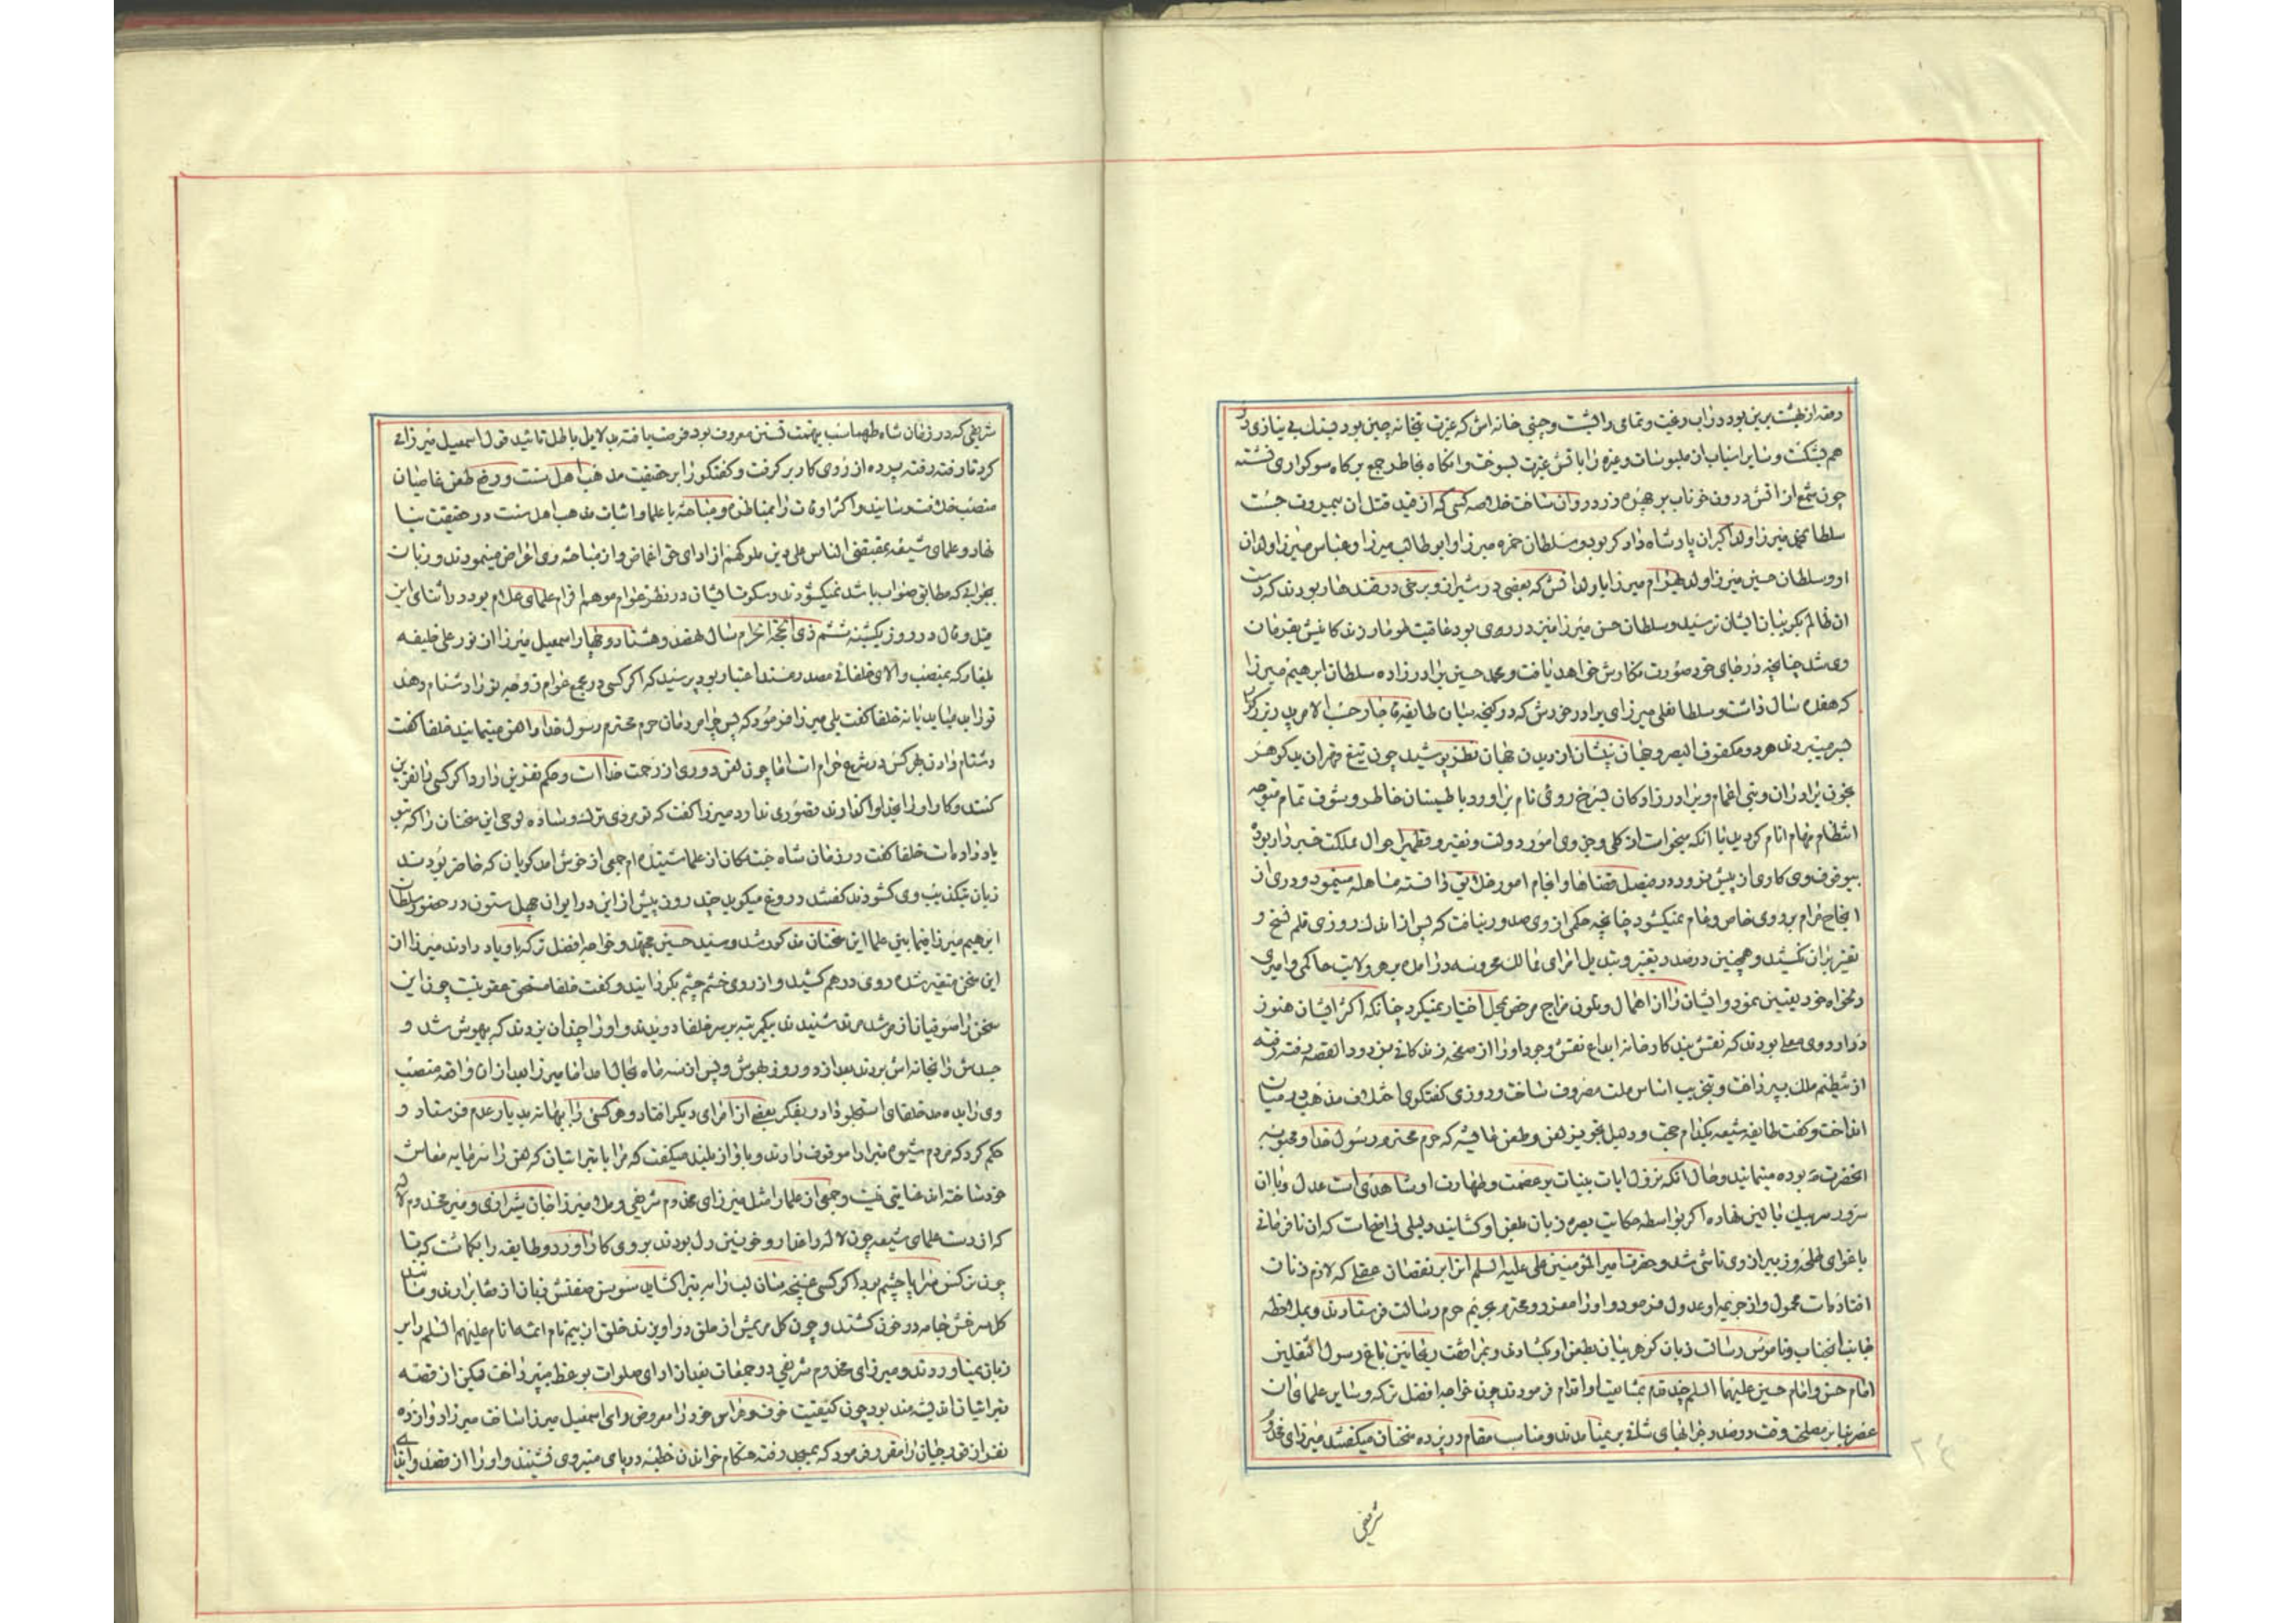 هم بشکست و سایر اسباب از ملبوسات و غیره را باتش غیرت بسوخت و انگاه بخاطر جمع بر کاه سوکواری نشسته
چون شمع از اتش درون خوناب بر چهره زرد روان ساخت خلاصه کسی که از قید قتل ان بیرون جست
سلطان محمد میرزا ولد اکبر ان پادشاه دادکر بود و سلطان حمزه میرزا و ابو طالب میرزا و عباس میرزا ولدان
او و سلطان حسین میرزا ولد بهرام میرزا با اولادش که بعضی در شیراز و برخی در قندهار بودند که دست
ان ظالم بکریبان ایشان نرسید و سلطان حسن میرزا نیز در ری بود عاقبت طومار زندکانیش بفرمان
وی شد چنانچه در جای خود صورت نکارش خواهد یافت و محمد حسین برادر زاده سلطان ابرهیم میرزا
که هفده سال داشت و سلطانعلی میرزای برادر خودش که در کنجه میان طایفه قاجار حسب الامر پدر بزرکوار
بسر میبردند هر دو مکفوف البصر و جهان بینشان از دیدن جهان نظر پوشید چون تیغ قهر ان بدکوهر
بخون برادران و بنی اعمام و برادر زادکان بسرخ روئی نام براورد با طمینان خاطر و شوف تمام متوجه
انتظام مهام انام کردید با انکه میخواست از کلی و جزوی امور دولت و نقیر و قطمیر احوال مملکت خبردار بود
بیوقوف وی کاری از پیش نرود در فیصل قضاها و انجام امور خلایق دانسته مساهله مینمود و دری از
انجاح مرام بر روی خاص و عام نمیکشود چنانچه حکمی از وی صدور نیافت که پس از اندک روزی قلم فسخ و
تغییر بران نکشید و همچنین در صدد تغییر و تبدیل امرای ممالک محروسه درامده بهر ولایت حاکمی و امیری
دلخواه خود تعیین نمود و ایشان را از اهمال و تلون مزاج مرخص بمحل اختیار نمیکرد چنانکه اکثر ایشان هنوز
در اردوی معلی بودند که نقش بند کارخانه ابداع نقش وجود او را از صفحه زندکانی بزدود القصه رفته رفته
از تنظیم ملک بپرداخت و بتخریب اساس ملت مصروف ساخت و روزی کفتکوی اختلاف مذهب در میان
انداخت و کفت طایفه شیعه بکدام حجت و دلیل تجویز لعن و طعن عایشه که حرم محترم رسول خدا و محبوبه
انحضرت بوده مینمایند و حال انکه نزول ایات بینات بر عصمت و طهارت او شاهدی است عدل و با ان
سرور سر بیک بالین نهاده اکر بواسطه حکایت بصره زبان بلعن او کشایند دلیلی ناواضحات که ان نافرمانی
باغوای طلحه و زبیر از وی ناشی شد و حضرت امیر المؤمنین علی علیه السلم انرا بر نقصان عقلی که لازم ذنات
افتاده است محمول و از جریمه او عدول فرمود و او را معزز و محترم بحریم حرم رسالت فرستادند و بملاحظه
جانب انجناب و ناموس رسالت زبان کوهر بیان بطعن او نکشادند و بمرافقت ریحانتین باغ رسول الثقلین
امام حسن و امام حسین علیهما السلم چند قدم بمشایعت او اقدام فرمودند چون خواجه افضل ترکه و سایر علمای ان
عصر بنا بر مصلحت وقت در صدد جوابهای شافی بر نمیامدند و مناسب مقام در پرده سخنان میکفتند میرزای مخدوم
شریفی
شریفی که در زمان شاه طهماسب بتهمت تسنن معروف بود فرصت یافته بدلایل باطل تائید قول اسمعیل میرزا
کرد تا رفته رفته پرده از روی کار بر کرفت و کفتکو را بر حقیقت مذهب اهل سنت و رفع طعن غاصبان
منصب خلافت رسانید و اکثر اوقات را بمناظره و مباحثه با علما و اثبات مذهب اهل سنت در حقیقت بنا
نهاد و علمای شیعه بمقتضی الناس علی دین ملوکهم از ادای حق اغماض و از مباحثه وی اعراض مینمودند و زبان
بجوابی که مطابق صواب باشد نمیکشودند و سکوت ایشان در نظر عوام موهم الزام علمای علام بود در اثنای این
قیل و قال در روز یکشنبه ششم ذی الحجة الحرام سال نهصد و هشتاد و چهار اسمعیل میرزا از نور علی خلیفه
که بمنصب والای خلفائی مصدر مسند اعتبار بود پرسید که اکر کسی در مجمع عوام زوجه تو را دشنام دهد
تو را بد میاید یا نه خلفا کفت بلی میرزا فرمود که پس چرا مردمان حرم محترم رسول خدا را لعن مینمایند خلفا کفت
دشنام دادن بهر کس در شرع حرام است اما چون لعن دوری از رحمت خدا است و حکم نفرین دارد اکر کسی را نفرین
کنند و کار او را بخدا واکذارند قصوری ندارد میرزا کفت که تو مردی ترک و ساده لوحی این سخنان را که بتو
یاد داده است خلفا کفت در زمان شاه جنت مکان از علما شنیده ام جمعی از خوش امد کویان که حاضر بودند
زبان بتکذیب وی کشودند کفتند دروغ میکوید چند روز پیش از این در ایوان چهل ستون در حضور سلطان
ابرهیم میرزا فیما بین علما این سخنان مذکور شد و سید حسین مجتهد و خواجه افضل ترکه باو یاد دادند میرزا از
این سخن متغیر شده روی درهم کشید و از روی خشم چشم بکردانید و کفت خلفا مستحق عقوبت چون این
سخن را صوفیان از مرشد خود شنیدند بیکمرتبه بر سر خلفا دویدند و او را چندان بزدند که بیهوش شد و
جسدش را بخانه اش بردند بعد از دو روز بهوش و پس از سه ماه بحال امد اما میرزا بعد از ان واقعه منصب
وی را بدده ده خلفای استجلو داد و بفکر بعضی از امرای دیکر افتاد و هر کسی را بهانه بدیار عدم فرستاد و
حکم کرد که مردم شیوه تبرا را موقوف دارند و باواز بلند میکفت که مرا با تبرائیان که لعن را سرمایه معاش
خود ساخته اند عنایتی نیست و جمعی از علما را مثل میرزای مخدوم شریفی و ملا میرزا جان شیرازی و میر مخدوم لاله
که از دست علمای شیعه چون لاله داغدار و خونین دل بودند بروی کار اورد و طایفه را بکماشت که تا
چون نرکس سراپا چشم بود اکر کسی غنچه سان لب را به تبرا کشاید سوسن صفتش زبان از قفا برارند و مانند
کل سرخش جامه در خون کشند و چون کل مریمش از حلق در اویزند خلق از بیم نام ائمه انام علیهم السلم را بر
زبان نمیاوردند و میرزای مخدوم شریفی در جمعات بعد از ادای صلوات بوعظ میپرداخت لیکن از قصه
تبرائیان اندیشه مند بود چون کیفیت خوف و هراس خود را معروض رای اسمعیل میرزا ساخت میرزا دوازده
نفر از قورجیان را مقرر فرمود که بمسجد رفته هنکام خواندن خطبه در پای منبر وی نشینند و او را از قصد و ایذای